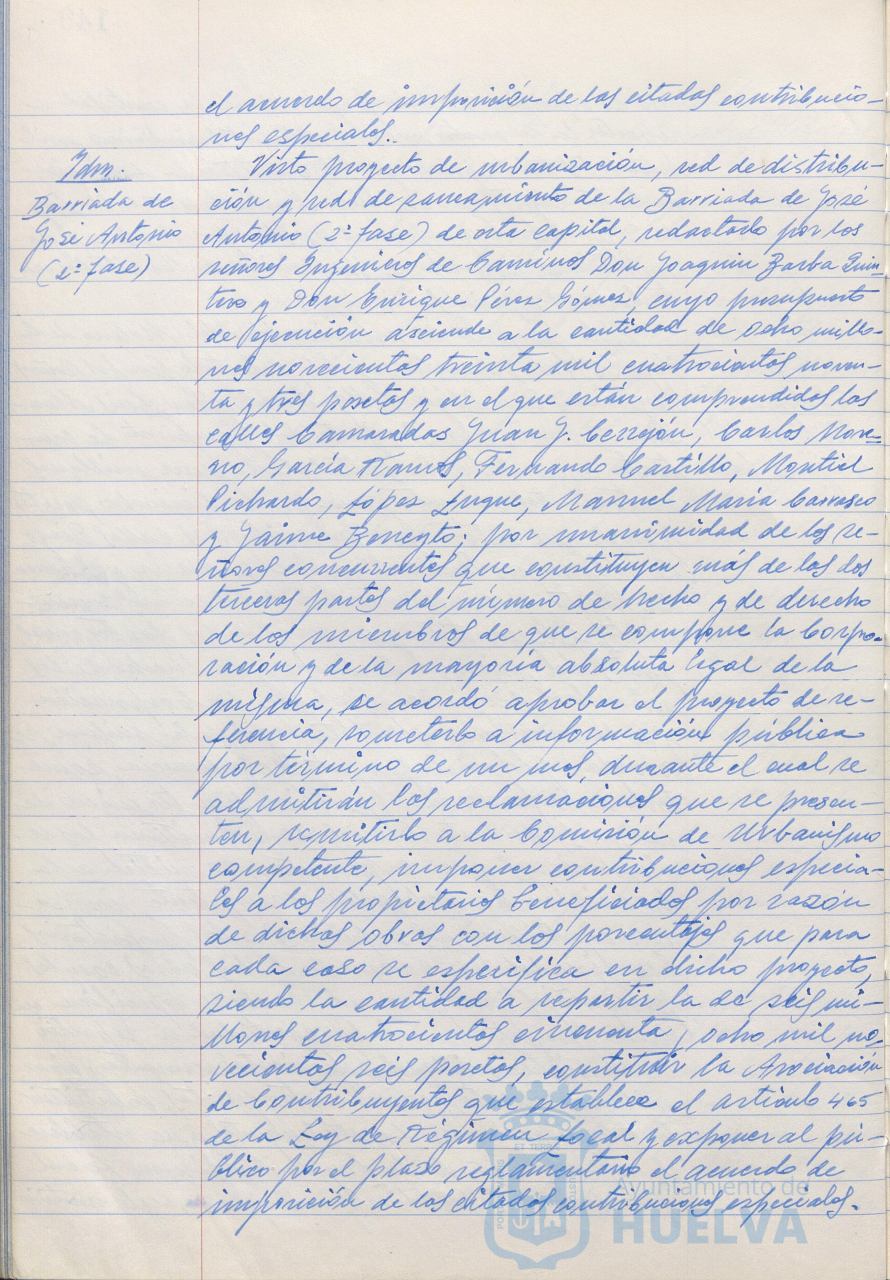 el acuerdo de imposición de las citadas contribucio-
nes especiales.
Idm.
Barriada de
José Antonio
(2ª fase)
Visto proyecto de urbanización, red de distribu-
ción y red de saneamiento de la Barriada de José
Antonio (2ª fase) de esta capital, redactado por los
señores Ingenieros de Caminos Don Joaquin Barba Quin-
tero y Don Enrique Pérez Gómez, cuyo presupuesto
de ejecución asciende a la cantidad de ocho millo-
nes novecientas treinta mil cuatrocientas noven-
ta y tres pesetas y en el que están comprendidas las
calles Camaradas Juan J. Cerrejón, Carlos More-
no, García Ramos, Fernando Castillo, Montiel
Pichardo, López Luque, Manuel María Carrasco
y Jaime Beneyto; por unanimidad de los se-
ñores concurrentes que constituyen más de las dos
terceras partes del número de hecho y de derecho
de los miembros de que se compone la Corpo-
ración y de la mayoría absoluta legal de la
misma, se acordó aprobar el proyecto de re-
ferencia, someterlo a información pública
por término de un mes, durante el cual se
admitirán las reclamaciones que se presen-
ten, remitirlo a la Comisión de Urbanismo
competente, imponer contribuciones especia-
les a los propietarios beneficiados por razón
de dichas obras con los porcentajes que para
cada caso se especifica en dicho proyecto,
siendo la cantidad a repartir la de seis mi-
llones cuatrocientas cincuenta y ocho mil no-
vecientas seis pesetas, constituir la Asociación
de Contribuyentes que establece el artículo 465
de la Ley de Régimen Local y exponer al pú-
blico por el plazo reglamentario el acuerdo de
imposición de las citadas contribuciones especiales.
Ayuntamiento de
HUELVA